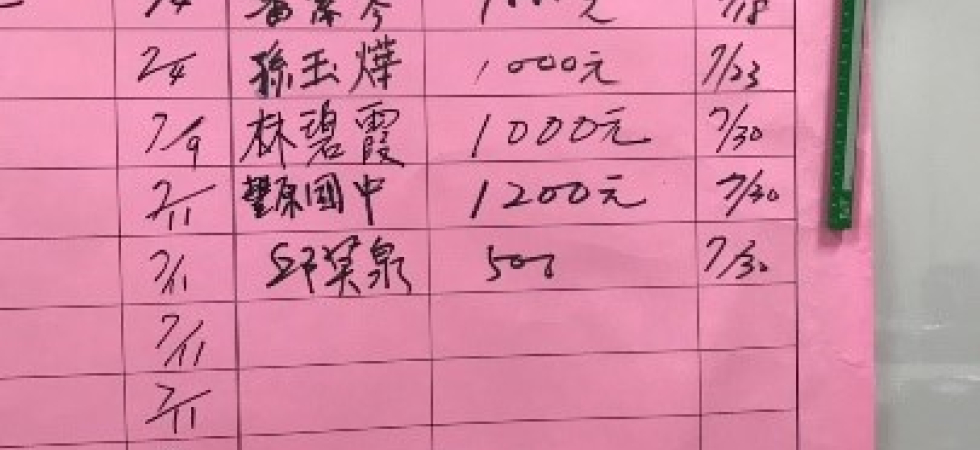 7/4 孫玉燁 1000元 7/23
7/9 林碧霞 1000元 7/30
7/11 豐原國中 1200元 7/30
7/11 邱英泉 500 7/30
7/11
7/11